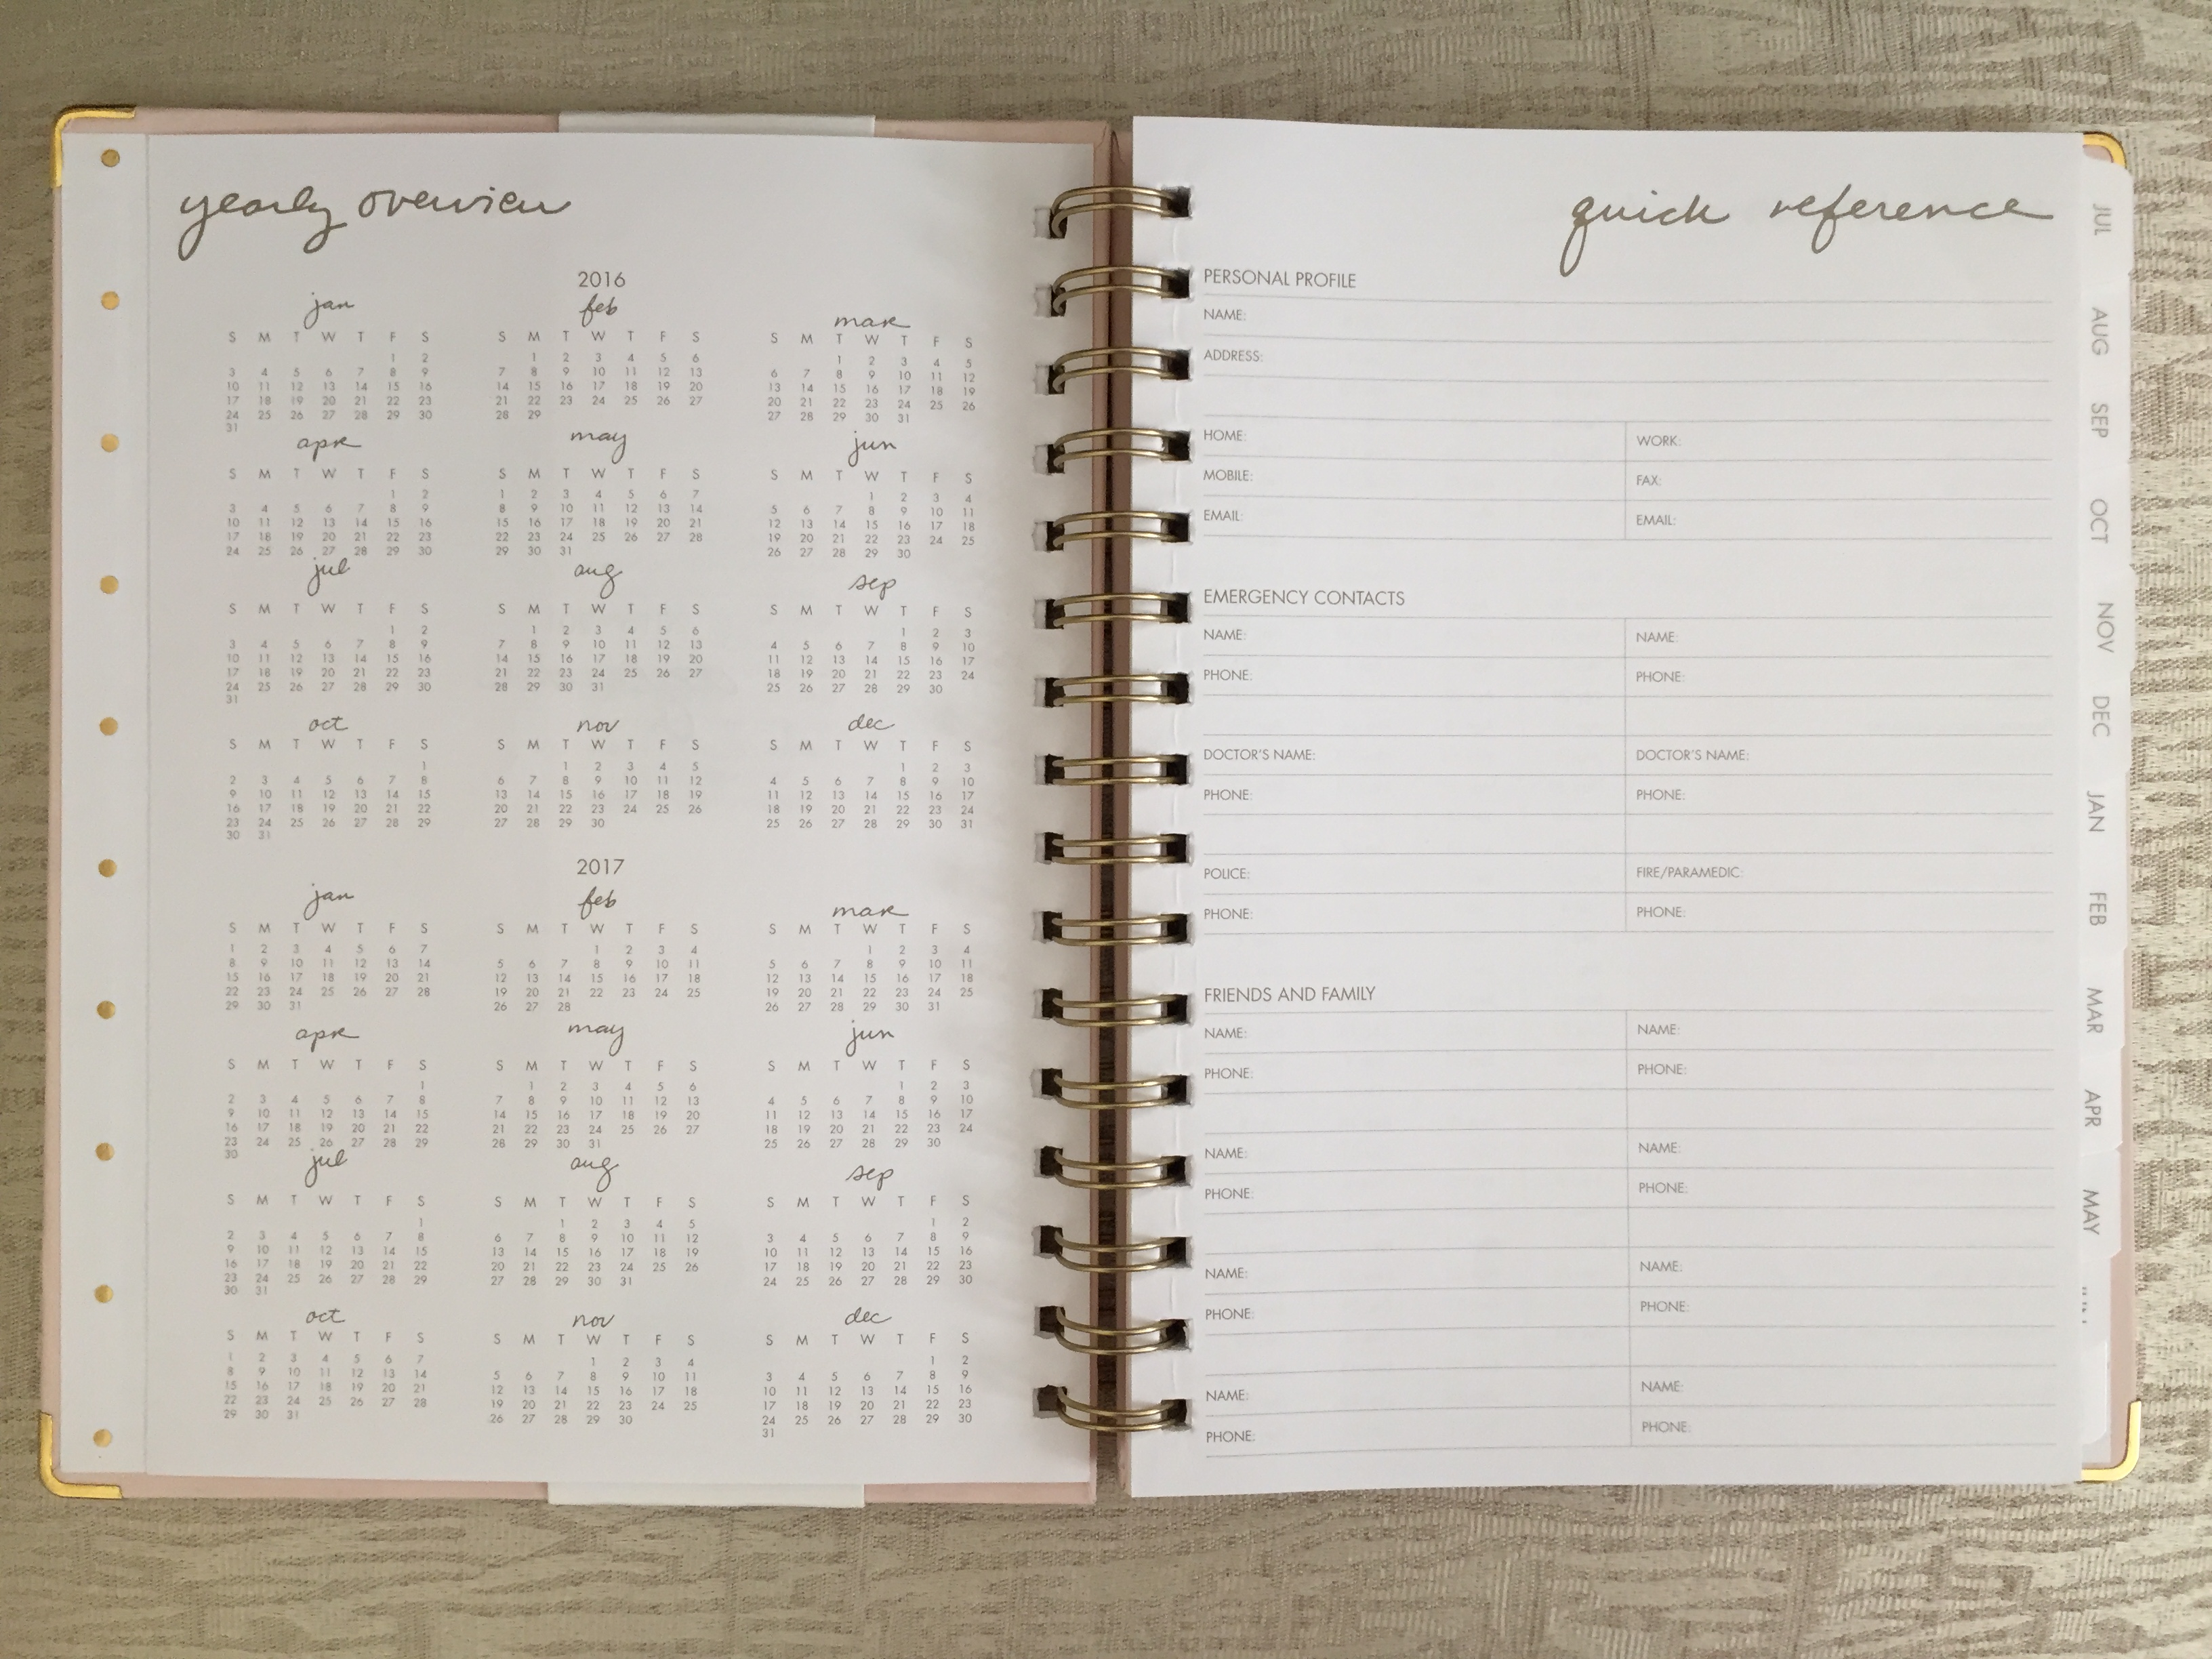 yearly overview
2016
jan feb mar
S M T W T F S S M T W T F S S M T W T F S
1 2 1 2 3 4 5 6 1 2 3 4 5
3 4 5 6 7 8 9 7 8 9 10 11 12 13 6 7 8 9 10 11 12
10 11 12 13 14 15 16 14 15 16 17 18 19 20 13 14 15 16 17 18 19
17 18 19 20 21 22 23 21 22 23 24 25 26 27 20 21 22 23 24 25 26
24 25 26 27 28 29 30 28 29 27 28 29 30 31
31
apr may jun
S M T W T F S S M T W T F S S M T W T F S
1 2 1 2 3 4 5 6 7 1 2 3 4
3 4 5 6 7 8 9 8 9 10 11 12 13 14 5 6 7 8 9 10 11
10 11 12 13 14 15 16 15 16 17 18 19 20 21 12 13 14 15 16 17 18
17 18 19 20 21 22 23 22 23 24 25 26 27 28 19 20 21 22 23 24 25
24 25 26 27 28 29 30 29 30 31 26 27 28 29 30
jul aug sep
S M T W T F S S M T W T F S S M T W T F S
1 2 1 2 3 4 5 6 1 2 3
3 4 5 6 7 8 9 7 8 9 10 11 12 13 4 5 6 7 8 9 10
10 11 12 13 14 15 16 14 15 16 17 18 19 20 11 12 13 14 15 16 17
17 18 19 20 21 22 23 21 22 23 24 25 26 27 18 19 20 21 22 23 24
24 25 26 27 28 29 30 28 29 30 31 25 26 27 28 29 30
31
oct nov dec
S M T W T F S S M T W T F S S M T W T F S
1 1 2 3 4 5 1 2 3
2 3 4 5 6 7 8 6 7 8 9 10 11 12 4 5 6 7 8 9 10
9 10 11 12 13 14 15 13 14 15 16 17 18 19 11 12 13 14 15 16 17
16 17 18 19 20 21 22 20 21 22 23 24 25 26 18 19 20 21 22 23 24
23 24 25 26 27 28 29 27 28 29 30 25 26 27 28 29 30 31
30 31
2017
jan feb mar
S M T W T F S S M T W T F S S M T W T F S
1 2 3 4 5 6 7 1 2 3 4 1 2 3 4
8 9 10 11 12 13 14 5 6 7 8 9 10 11 5 6 7 8 9 10 11
15 16 17 18 19 20 21 12 13 14 15 16 17 18 12 13 14 15 16 17 18
22 23 24 25 26 27 28 19 20 21 22 23 24 25 19 20 21 22 23 24 25
29 30 31 26 27 28 26 27 28 29 30 31
apr may jun
S M T W T F S S M T W T F S S M T W T F S
1 1 2 3 4 5 6 1 2 3
2 3 4 5 6 7 8 7 8 9 10 11 12 13 4 5 6 7 8 9 10
9 10 11 12 13 14 15 14 15 16 17 18 19 20 11 12 13 14 15 16 17
16 17 18 19 20 21 22 21 22 23 24 25 26 27 18 19 20 21 22 23 24
23 24 25 26 27 28 29 28 29 30 31 25 26 27 28 29 30
30
jul aug sep
S M T W T F S S M T W T F S S M T W T F S
1 1 2 3 4 5 1 2
2 3 4 5 6 7 8 6 7 8 9 10 11 12 3 4 5 6 7 8 9
9 10 11 12 13 14 15 13 14 15 16 17 18 19 10 11 12 13 14 15 16
16 17 18 19 20 21 22 20 21 22 23 24 25 26 17 18 19 20 21 22 23
23 24 25 26 27 28 29 27 28 29 30 31 24 25 26 27 28 29 30
30 31
oct nov dec
S M T W T F S S M T W T F S S M T W T F S
1 2 3 4 5 6 7 1 2 3 4 1 2
8 9 10 11 12 13 14 5 6 7 8 9 10 11 3 4 5 6 7 8 9
15 16 17 18 19 20 21 12 13 14 15 16 17 18 10 11 12 13 14 15 16
22 23 24 25 26 27 28 19 20 21 22 23 24 25 17 18 19 20 21 22 23
29 30 31 26 27 28 29 30 24 25 26 27 28 29 30
31
quick reference
PERSONAL PROFILE
NAME:
ADDRESS:
HOME: WORK:
MOBILE: FAX:
EMAIL: EMAIL:
EMERGENCY CONTACTS
NAME: NAME:
PHONE: PHONE:
DOCTOR'S NAME: DOCTOR'S NAME:
PHONE: PHONE:
POLICE: FIRE/PARAMEDIC:
PHONE: PHONE:
FRIENDS AND FAMILY
NAME: NAME:
PHONE: PHONE:
NAME: NAME:
PHONE: PHONE:
NAME: NAME:
PHONE: PHONE:
NAME: NAME:
PHONE: PHONE:
JUL
AUG
SEP
OCT
NOV
DEC
JAN
FEB
MAR
APR
MAY